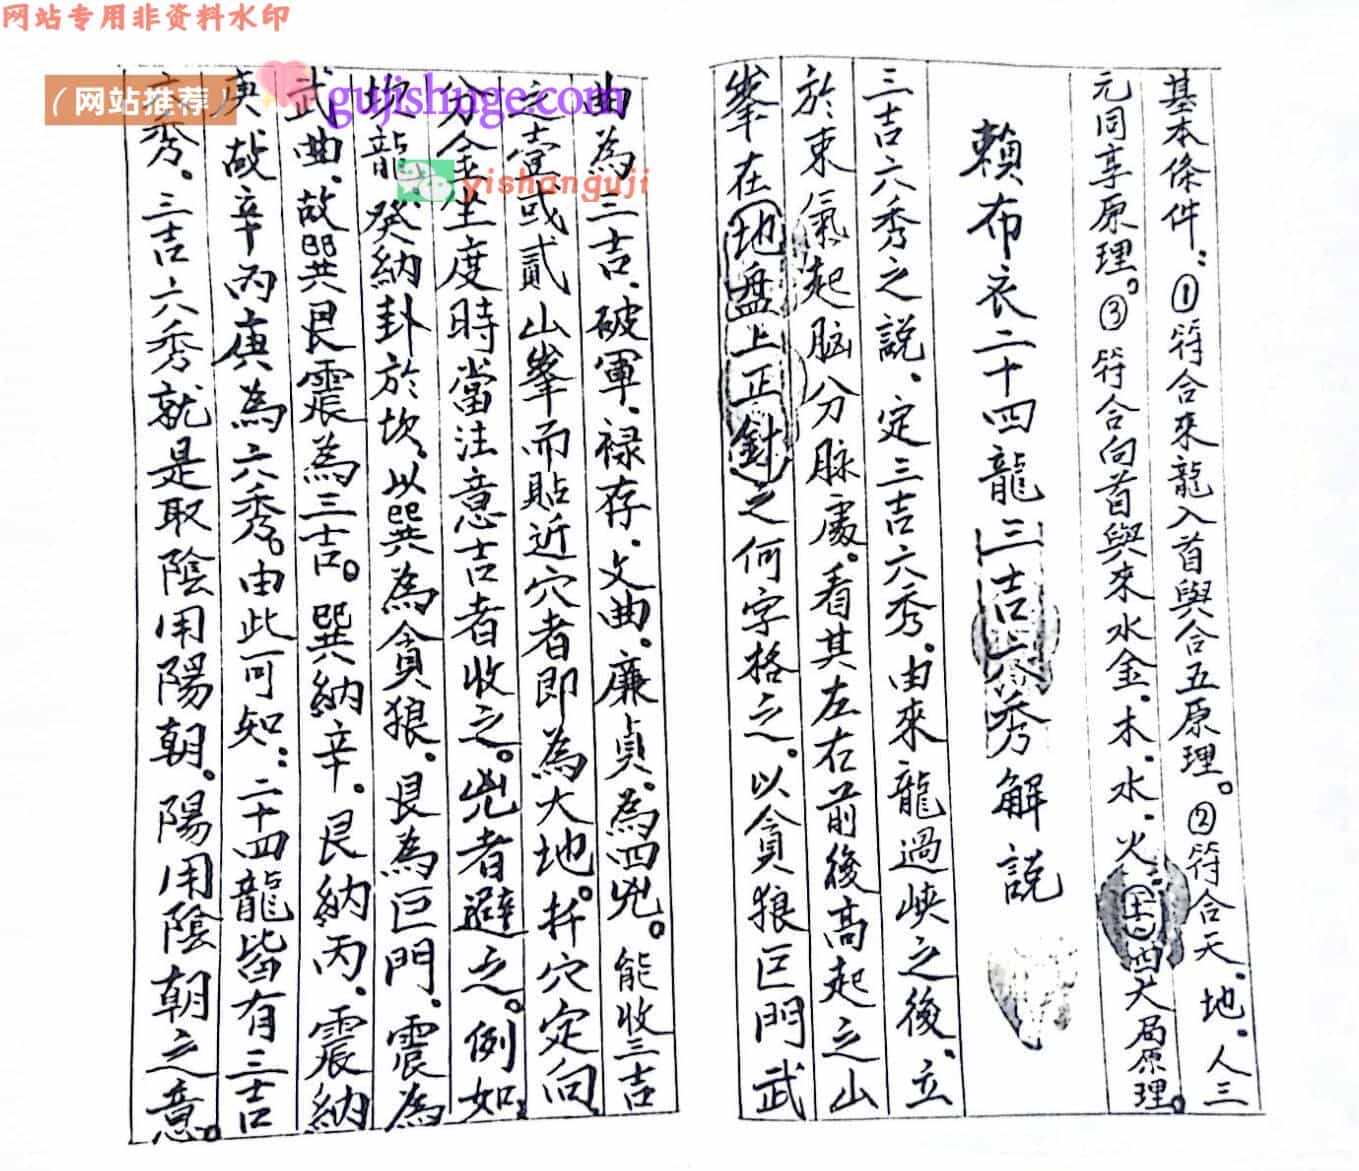 网站专用非资料水印
（网站推荐）
gujishuge.com
yishanguji
基本條件：①符合來龍入首與合五原理。②符合天、地、人三
元同享原理。③符合向首與來水金、木、水、火(土)四大局原理。
賴布衣二十四龍三吉六秀解説
三吉六秀之説、定三吉六秀、由來龍過峽之後、立
於束氣起脑分脉處。看其左右前後高起之山
峯在地盤上正針之何字格之、以貪狼巨門武
曲為三吉、破軍、禄存、文曲、廉貞、為四兇。能收三吉
之壹或貳山峯而貼近穴者即為大地。扦穴定向
分金坐度時當注意吉者收之。兇者避之。例如
坎龍、癸納卦於坎、以巽為貪狼、艮為巨門、震為
武曲、故巽艮震為三吉。巽納辛、艮納丙、震納
庚故辛丙庚為六秀。由此可知：二十四龍皆有三吉
六秀。三吉六秀就是取陰用陽朝、陽用陰朝之意。